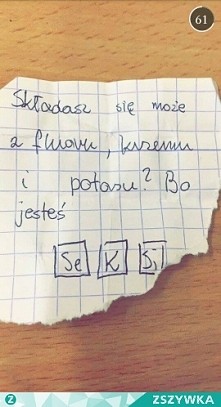 61
Składasz się może
z fluoru, krzemu
i potasu? Bo
jesteś
Se K Si
ZSZYWKA